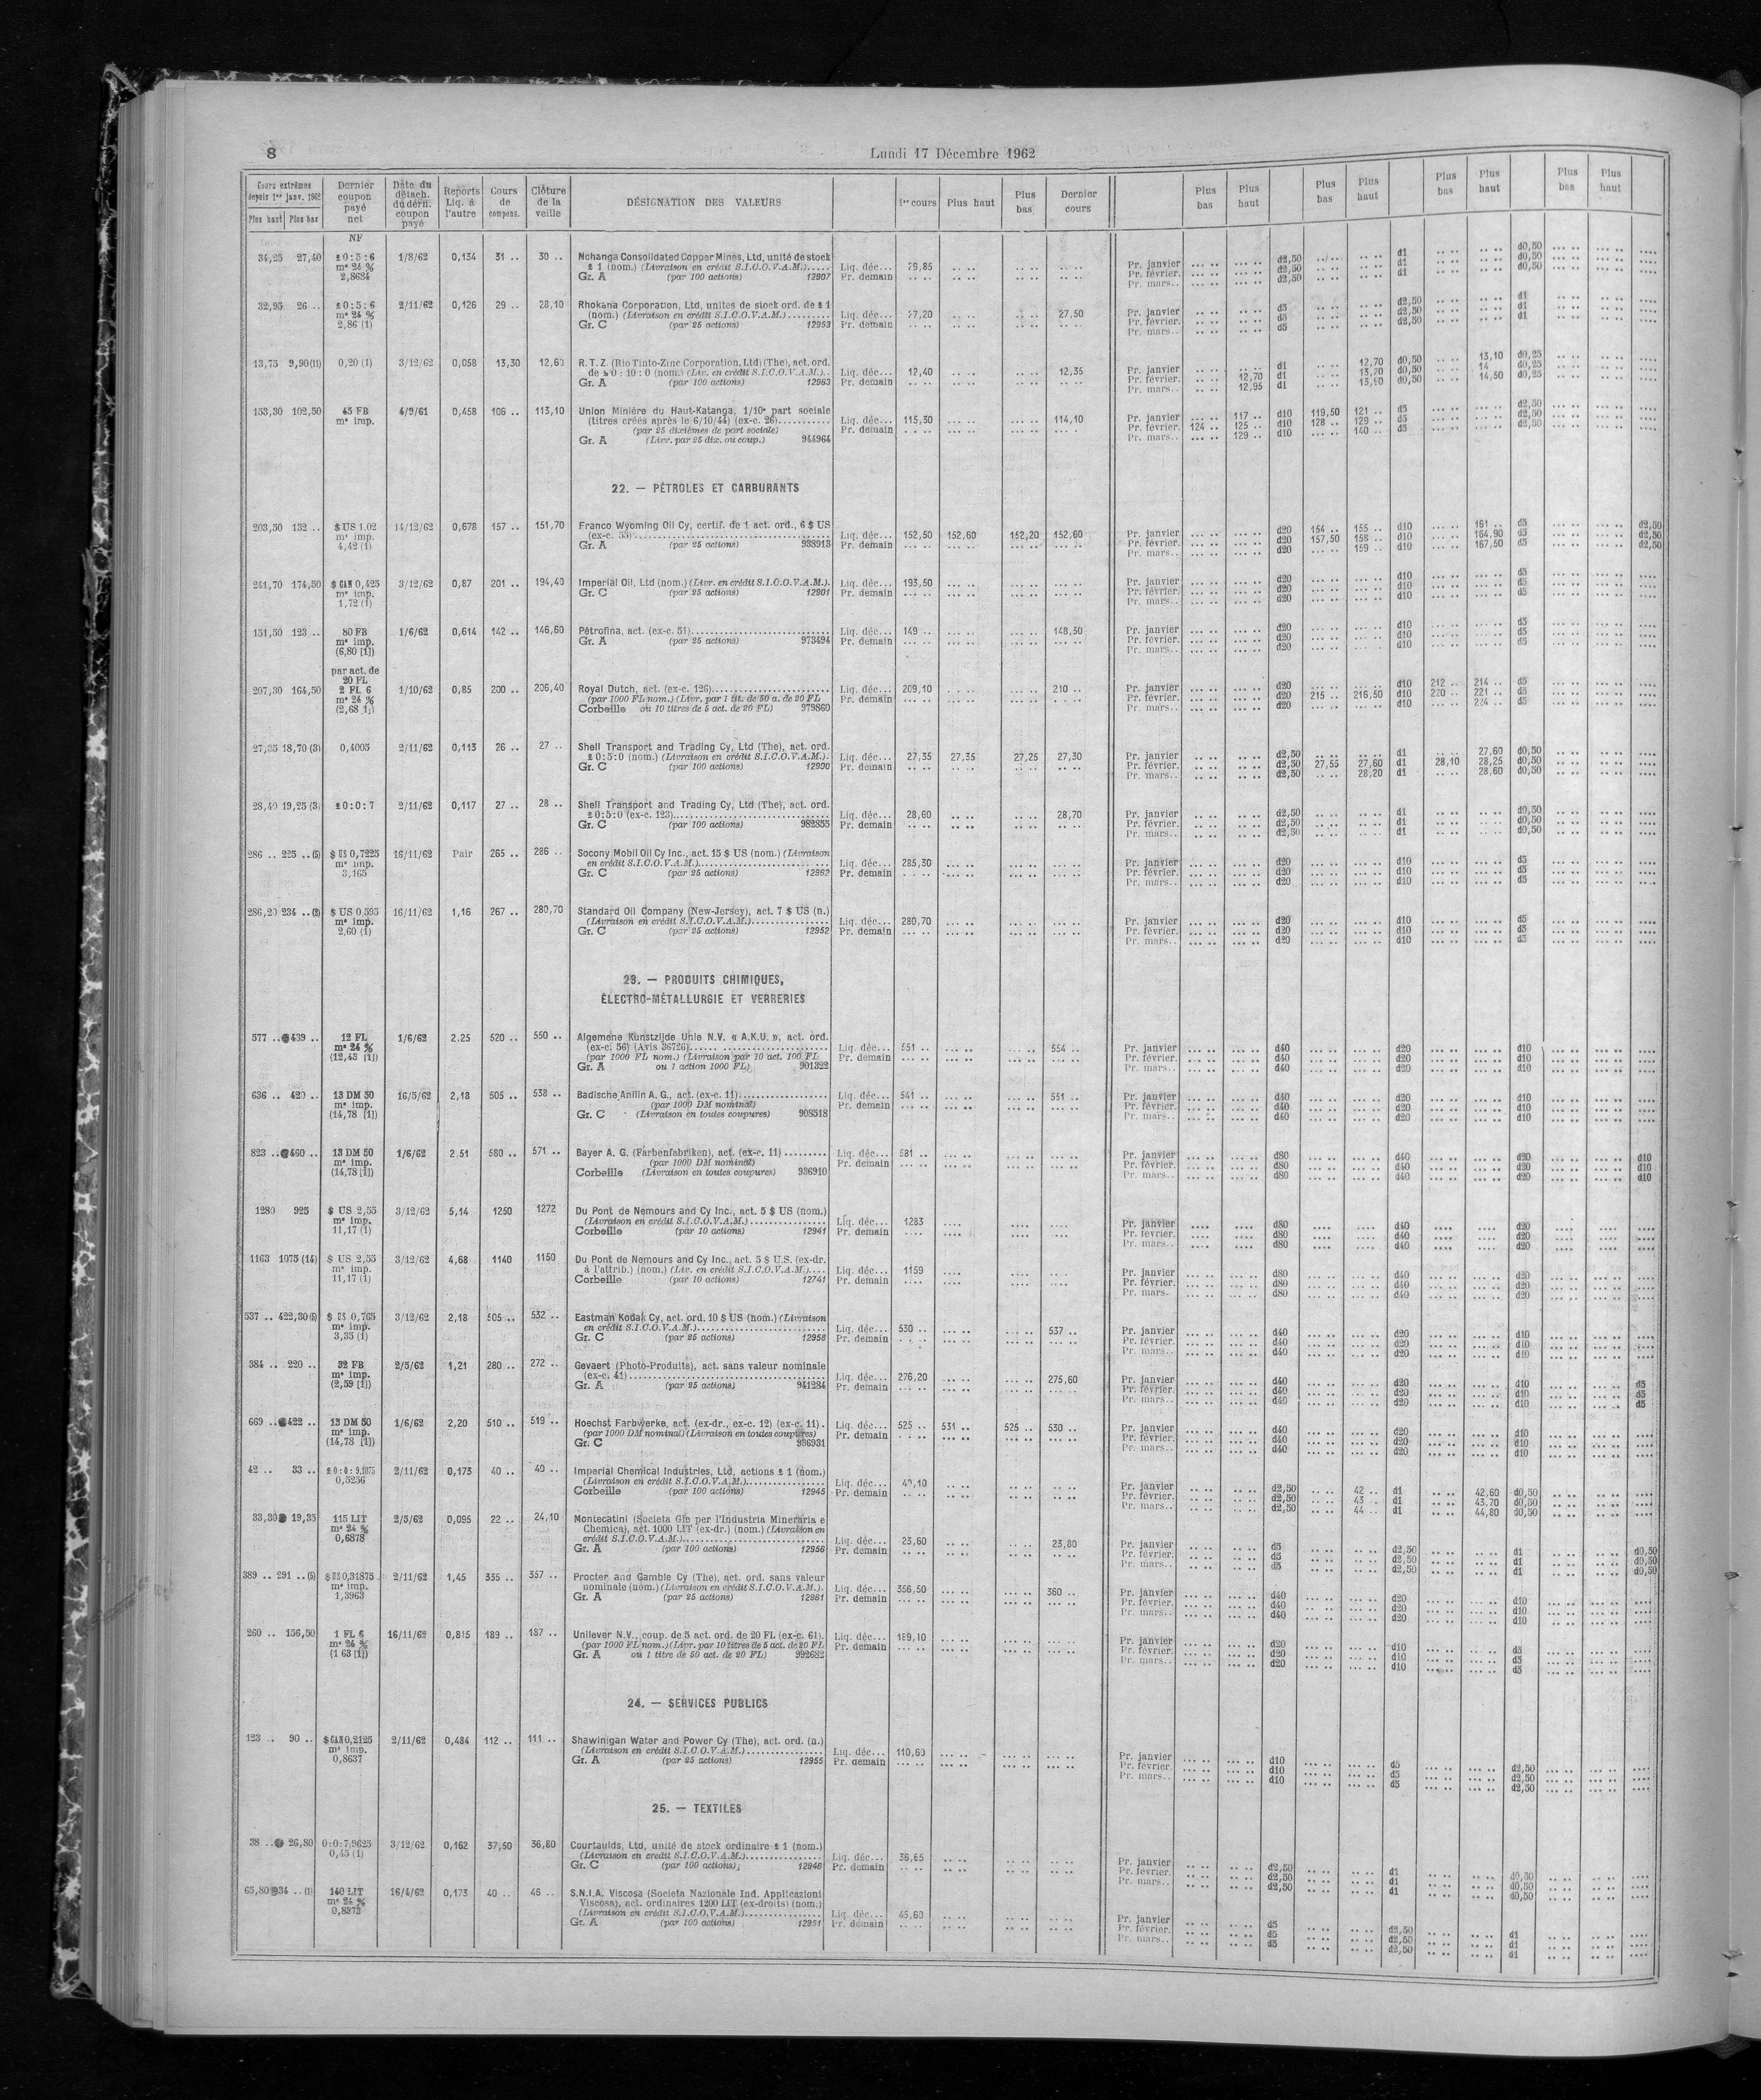 8
Lundi 17 Décembre 1962
Cours extrêmes depuis 1er janv. 1962 Plus haut Plus bas | Dernier coupon payé net | Date du détach. du dérn. coupon payé | Reports Liq. à l'autre | Cours de compens. | Clôture de la veille | DÉSIGNATION DES VALEURS | 1er cours | Plus haut | Plus bas | Dernier cours | Plus bas | Plus haut | Plus bas | Plus haut | Plus bas | Plus haut | Plus bas | Plus haut
NF
34,25 27,40 £ 0:5:6 1/8/62 0,134 31 .. 30 .. Nchanga Consolidated Copper Mines, Ltd, unité de stock
m° 24 % £ 1 (nom.) (Livraison en crédit S.I.C.O.V.A.M.)..... Liq. déc... 29,85 Pr. janvier d2,50 d1 d0,50
2,8634 Gr. A (par 100 actions) 12907 Pr. demain Pr. février. d2,50 d1 d0,50
Pr. mars.. d2,50 d1 d0,50
32,95 26 .. £ 0:5:6 2/11/62 0,126 29 .. 28,10 Rhokana Corporation, Ltd, unites de stock ord. de £ 1
m° 24 % (nom.) (Livraison en crédit S.I.C.O.V.A.M.)......... Liq. déc... 27,20 27,50 Pr. janvier d5 d2,50 d1
2,86 (1) Gr. C (par 25 actions) 12953 Pr. demain Pr. février. d5 d2,50 d1
Pr. mars.. d5 d2,50 d1
13,75 9,90(11) 0,20 (1) 3/12/62 0,058 13,30 12,60 R.T.Z. (Rio Tinto-Zinc Corporation, Ltd) (The), act. ord.
de £ 0:10:0 (nom.) (Liv. en crédit S.I.C.O.V.A.M.).. Liq. déc... 12,40 12,35 Pr. janvier d1 12,70 d0,50 13,10 d0,25
Gr. A (par 100 actions) 12963 Pr. demain Pr. février. 12,70 d1 13,70 d0,50 14 d0,25
Pr. mars.. 12,95 d1 13,90 d0,50 14,50 d0,25
153,30 102,50 45 FB 4/9/61 0,458 106 .. 113,10 Union Minière du Haut-Katanga, 1/10e part sociale
m° imp. (titres créés après le 6/10/44) (ex-c. 26)........... Liq. déc... 115,30 114,10 Pr. janvier 117 .. d10 119,50 121 .. d5 d2,50
(par 25 dixièmes de part sociale) Pr. demain Pr. février. 124 .. 125 .. d10 128 .. 129 .. d5 d2,50
Gr. A (Livr. par 25 dix. ou coup.) 944964 Pr. mars.. 129 .. d10 140 .. d5 d2,50
22. — PÉTROLES ET CARBURANTS
203,50 132 .. $ US 1,02 14/12/62 0,678 157 .. 151,70 Franco Wyoming Oil Cy, certif. de 1 act. ord., 6 $ US
m° imp. (ex-c. 55)............ Liq. déc... 152,50 152,60 152,20 152,60 Pr. janvier d20 154 .. 155 .. d10 161 .. d5 d2,50
4,42 (1) Gr. A (par 25 actions) 938913 Pr. demain Pr. février. d20 157,50 158 .. d10 164,90 d5 d2,50
Pr. mars.. d20 159 .. d10 167,50 d5 d2,50
241,70 174,50 $ CAN 0,425 3/12/62 0,87 201 .. 194,40 Imperial Oil, Ltd (nom.) (Livr. en crédit S.I.C.O.V.A.M.). Liq. déc... 193,50 Pr. janvier d20 d10 d5
m° imp. Gr. C (par 25 actions) 12901 Pr. demain Pr. février. d20 d10 d5
1,72 (1) Pr. mars.. d20 d10 d5
151,50 123 .. 80 FB 1/6/62 0,614 142 .. 146,60 Pétrofina, act. (ex-c. 51)............ Liq. déc... 149 .. 148,50 Pr. janvier d20 d10 d5
m° imp. Gr. A (par 25 actions) 973494 Pr. demain Pr. février. d20 d10 d5
(6,80 [1]) Pr. mars.. d20 d10 d5
par act. de
20 FL
207,30 164,50 2 FL 6 1/10/62 0,85 200 .. 206,40 Royal Dutch, act. (ex-c. 126)............ Liq. déc... 209,10 210 .. Pr. janvier d20 d10 212 .. 214 .. d5
m° 24 % (par 1000 FL nom.) (Livr. par 1 tit. de 50 a. de 20 FL Pr. demain Pr. février. d20 215 .. 216,50 d10 220 .. 221 .. d5
(2,68 [1]) Corbeille ou 10 titres de 5 act. de 20 FL) 979860 Pr. mars.. d20 d10 224 .. d5
27,35 18,70 (3) 0,4005 2/11/62 0,113 26 .. 27 .. Shell Transport and Trading Cy, Ltd (The), act. ord.
£ 0:5:0 (nom.) (Livraison en crédit S.I.C.O.V.A.M.). Liq. déc... 27,35 27,35 27,25 27,30 Pr. janvier d2,50 d1 27,60 d0,50
Gr. C (par 100 actions) 12900 Pr. demain Pr. février. d2,50 27,55 27,60 d1 28,10 28,25 d0,50
Pr. mars.. d2,50 28,20 d1 28,60 d0,50
28,40 19,25 (3) £ 0:0:7 2/11/62 0,117 27 .. 28 .. Shell Transport and Trading Cy, Ltd (The), act. ord.
£ 0:5:0 (ex-c. 123)............ Liq. déc... 28,60 28,70 Pr. janvier d2,50 d1 d0,50
Gr. C (par 100 actions) 982835 Pr. demain Pr. février. d2,50 d1 d0,50
Pr. mars.. d2,50 d1 d0,50
286 .. 225 ..(5) $ US 0,7225 16/11/62 Pair 265 .. 286 .. Socony Mobil Oil Cy Inc., act. 15 $ US (nom.) (Livraison
m° imp. en crédit S.I.C.O.V.A.M.)............ Liq. déc... 285,30 Pr. janvier d20 d10 d5
3,165 Gr. C (par 25 actions) 12962 Pr. demain Pr. février. d20 d10 d5
Pr. mars.. d20 d10 d5
286,20 234 ..(2) $ US 0,595 16/11/62 1,16 267 .. 280,70 Standard Oil Company (New-Jersey), act. 7 $ US (n.)
m° imp. (Livraison en crédit S.I.C.O.V.A.M.)............ Liq. déc... 280,70 Pr. janvier d20 d10 d5
2,60 (1) Gr. C (par 25 actions) 12952 Pr. demain Pr. février. d20 d10 d5
Pr. mars.. d20 d10 d5
23. — PRODUITS CHIMIQUES,
ÉLECTRO-MÉTALLURGIE ET VERRERIES
577 .. 439 .. 12 FL 1/6/62 2,25 520 .. 550 .. Algemene Kunstzijde Unie N.V. « A.K.U. », act. ord.
m° 24 % (ex-c. 56) (Avis 36726)............ Liq. déc... 551 .. 554 .. Pr. janvier d40 d20 d10
(12,43 [1]) (par 1000 FL nom.) (Livraison par 10 act. 100 FL Pr. demain Pr. février. d40 d20 d10
Gr. A ou 1 action 1000 FL) 901322 Pr. mars.. d40 d20 d10
636 .. 420 .. 13 DM 50 16/5/62 2,18 505 .. 538 .. Badische Anilin A. G., act. (ex-c. 11)............ Liq. déc... 541 .. 551 .. Pr. janvier d40 d20 d10
m° imp. (par 1000 DM nominal) Pr. demain Pr. février. d40 d20 d10
(14,78 [1]) Gr. C (Livraison en toutes coupures) 908518 Pr. mars.. d40 d20 d10
823 .. 460 .. 13 DM 50 1/6/62 2,51 580 .. 571 .. Bayer A. G. (Farbenfabriken), act. (ex-c. 11)......... Liq. déc... 581 .. Pr. janvier d80 d40 d20 d10
m° imp. (par 1000 DM nominal) Pr. demain Pr. février. d80 d40 d20 d10
(14,78 [1]) Corbeille (Livraison en toutes coupures) 936910 Pr. mars.. d80 d40 d20 d10
1280 925 $ US 2,55 3/12/62 5,14 1250 1272 Du Pont de Nemours and Cy Inc., act. 5 $ US (nom.)
m° imp. (Livraison en crédit S.I.C.O.V.A.M.)............ Liq. déc... 1283 Pr. janvier d80 d40 d20
11,17 (1) Corbeille (par 10 actions) 12941 Pr. demain Pr. février. d80 d40 d20
Pr. mars.. d80 d40 d20
1163 1075 (14) $ US 2,55 3/12/62 4,68 1140 1150 Du Pont de Nemours and Cy Inc., act. 5 $ U.S. (ex-dr.
m° imp. à l'attrib.) (nom.) (Liv. en crédit S.I.C.O.V.A.M.).... Liq. déc... 1159 Pr. janvier d80 d40 d20
11,17 (1) Corbeille (par 10 actions) 12741 Pr. demain Pr. février. d80 d40 d20
Pr. mars. d80 d40 d20
537 .. 422,30(5) $ US 0,765 3/12/62 2,18 505 .. 532 .. Eastman Kodak Cy, act. ord. 10 $ US (nom.) (Livraison
m° imp. en crédit S.I.C.O.V.A.M.)............ Liq. déc... 530 .. 537 .. Pr. janvier d40 d20 d10
3,35 (1) Gr. C (par 25 actions) 12958 Pr. demain Pr. février. d40 d20 d10
Pr. mars.. d40 d20 d10
384 .. 220 .. 32 FB 2/5/62 1,21 280 .. 272 .. Gevaert (Photo-Produits), act. sans valeur nominale
m° imp. (ex-c. 41)............ Liq. déc... 276,20 275,60 Pr. janvier d40 d20 d10 d5
(2,59 [1]) Gr. A (par 25 actions) 941284 Pr. demain Pr. février. d40 d20 d10 d5
Pr. mars.. d40 d20 d10 d5
669 .. 422 .. 13 DM 50 1/6/62 2,20 510 .. 519 .. Hoechst Farbwerke, act. (ex-dr., ex-c. 12) (ex-c. 11). Liq. déc... 525 .. 531 .. 525 .. 530 .. Pr. janvier d40 d20 d10
m° imp. (par 1000 DM nominal) (Livraison en toutes coupures) Pr. demain Pr. février. d40 d20 d10
(14,78 [1]) Gr. C 936931 Pr. mars.. d40 d20 d10
42 .. 33 .. £ 0:0:9,1875 2/11/62 0,173 40 .. 40 .. Imperial Chemical Industries, Ltd, actions £ 1 (nom.)
0,5256 (Livraison en crédit S.I.C.O.V.A.M.)............ Liq. déc... 40,10 Pr. janvier d2,50 42 .. d1 42,60 d0,50
Corbeille (par 100 actions) 12945 Pr. demain Pr. février. d2,50 43 .. d1 43,70 d0,50
Pr. mars.. d2,50 44 .. d1 44,80 d0,50
33,30 19,35 115 LIT 2/5/62 0,095 22 .. 24,10 Montecatini (Societa Gle per l'Industria Mineraria e
m° 24 % Chemica), act. 1000 LIT (ex-dr.) (nom.) (Livraison en
0,6878 crédit S.I.C.O.V.A.M.)............ Liq. déc... 23,60 23,80 Pr. janvier d5 d2,50 d1 d0,50
Gr. A (par 100 actions) 12956 Pr. demain Pr. février. d5 d2,50 d1 d0,50
Pr. mars.. d5 d2,50 d1 d0,50
389 .. 291 ..(5) $ US 0,31875 2/11/62 1,45 335 .. 357 .. Procter and Gamble Cy (The), act. ord. sans valeur
m° imp. nominale (nom.) (Livraison en crédit S.I.C.O.V.A.M.). Liq. déc... 356,50 360 .. Pr. janvier d40 d20 d10
1,3963 Gr. A (par 25 actions) 12961 Pr. demain Pr. février. d40 d20 d10
Pr. mars.. d40 d20 d10
260 .. 156,50 1 FL 6 16/11/62 0,815 189 .. 187 .. Unilever N.V., coup. de 5 act. ord. de 20 FL (ex-c. 61). Liq. déc... 189,10 Pr. janvier d20 d10 d5
m° 24 % (par 1000 FL nom.) (Livr. par 10 titres de 5 act. de 20 FL Pr. demain Pr. février. d20 d10 d5
(1 63 [1]) Gr. A ou 1 titre de 50 act. de 20 FL) 992682 Pr. mars.. d20 d10 d5
24. — SERVICES PUBLICS
123 .. 90 .. $ CAN 0,2125 2/11/62 0,484 112 .. 111 .. Shawinigan Water and Power Cy (The), act. ord. (n.)
m° imp. (Livraison en crédit S.I.C.O.V.A.M.)............ Liq. déc... 110,60 Pr. janvier d10 d5 d2,50
0,8637 Gr. A (par 25 actions) 12955 Pr. demain Pr. février. d10 d5 d2,50
Pr. mars.. d10 d5 d2,50
25. — TEXTILES
38 .. 26,80 0:0:7,9625 3/12/62 0,162 37,50 36,80 Courtaulds, Ltd, unité de stock ordinaire £ 1 (nom.)
0,45 (1) (Livraison en crédit S.I.C.O.V.A.M.)............ Liq. déc... 36,65 Pr. janvier d2,50 d1 d0,50
Gr. C (par 100 actions) 12946 Pr. demain Pr. février. d2,50 d1 d0,50
Pr. mars.. d2,50 d1 d0,50
65,80 34 ..(1) 140 LIT 16/4/62 0,173 40 .. 46 .. S.N.I.A. Viscosa (Societa Nazionale Ind. Applicazioni
m° 24 % Viscosa), act. ordinaires 1200 LIT (ex-droits) (nom.)
0,8373 (Livraison en crédit S.I.C.O.V.A.M.)............ Liq. déc... 45,60 Pr. janvier d5 d2,50 d1
Gr. A (par 100 actions) 12951 Pr. demain Pr. février. d5 d2,50 d1
Pr. mars.. d5 d2,50 d1